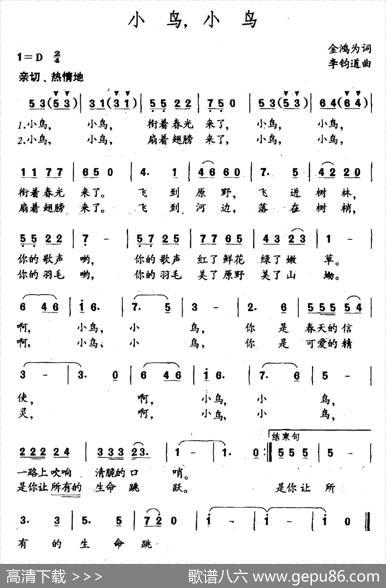 小 鸟，小 鸟
1=D 2/4
金鸿为词
李钧道曲
亲切、热情地
5 3 (5 3) | 3 1 (3 1) | 5 5 2 2 | 7 5 0 | 5 3 (5 3) | 6 4 (6 4) |
1.小鸟， 小鸟， 衔着春光 来了， 小鸟， 小鸟，
2.小鸟， 小鸟， 扇着翅膀 来了， 小鸟， 小鸟，
1 1 7 7 | 6 5 0 | 4. 1 | 4 6 6 0 | 7. 5 | 4 2 2 0 |
衔着春光 来了。 飞 到 原野， 飞 进 树林，
扇着翅膀 来了。 飞 到 河边， 落 在 树梢，
5 5 2 2 | 7 - | 5 7 2 5 | 7 7 6 5 | 4 3 2 3 | 1 - |
你的歌声 哟， 你的歌声 红了鲜花 绿了 嫩 草。
你的羽毛 哟， 你的羽毛 美了原野 美了 山 坳。
6 4 6 | i 6. | 7. 5 | 3 - | 6. 2 | 5 5 5 5 4 |
啊， 小鸟， 小 鸟， 你 是 春天的信
啊， 小鸟、 小 鸟， 你 是 可爱的精
3 - | 3. 0 | 6 4 6 | i 6. | 7. 6 | 5 - |
使， 啊， 小鸟， 小 鸟，
灵， 啊， 小鸟， 小 鸟，
结束句
2 2 2 2 4 | 3 3 3 2 3. | 1 - | 1. 0 :‖ 5 5 5 | 5 - |
一路上吹响 清脆的口 哨。
是你让所有的 生命跳 跃。 是你让 所
3. 3 | 5. 5 | 7 2 0 | i - | i - | i 0 ‖
有 的 生 命 跳
高清下载 >>>
歌谱八六 www.gepu86.com